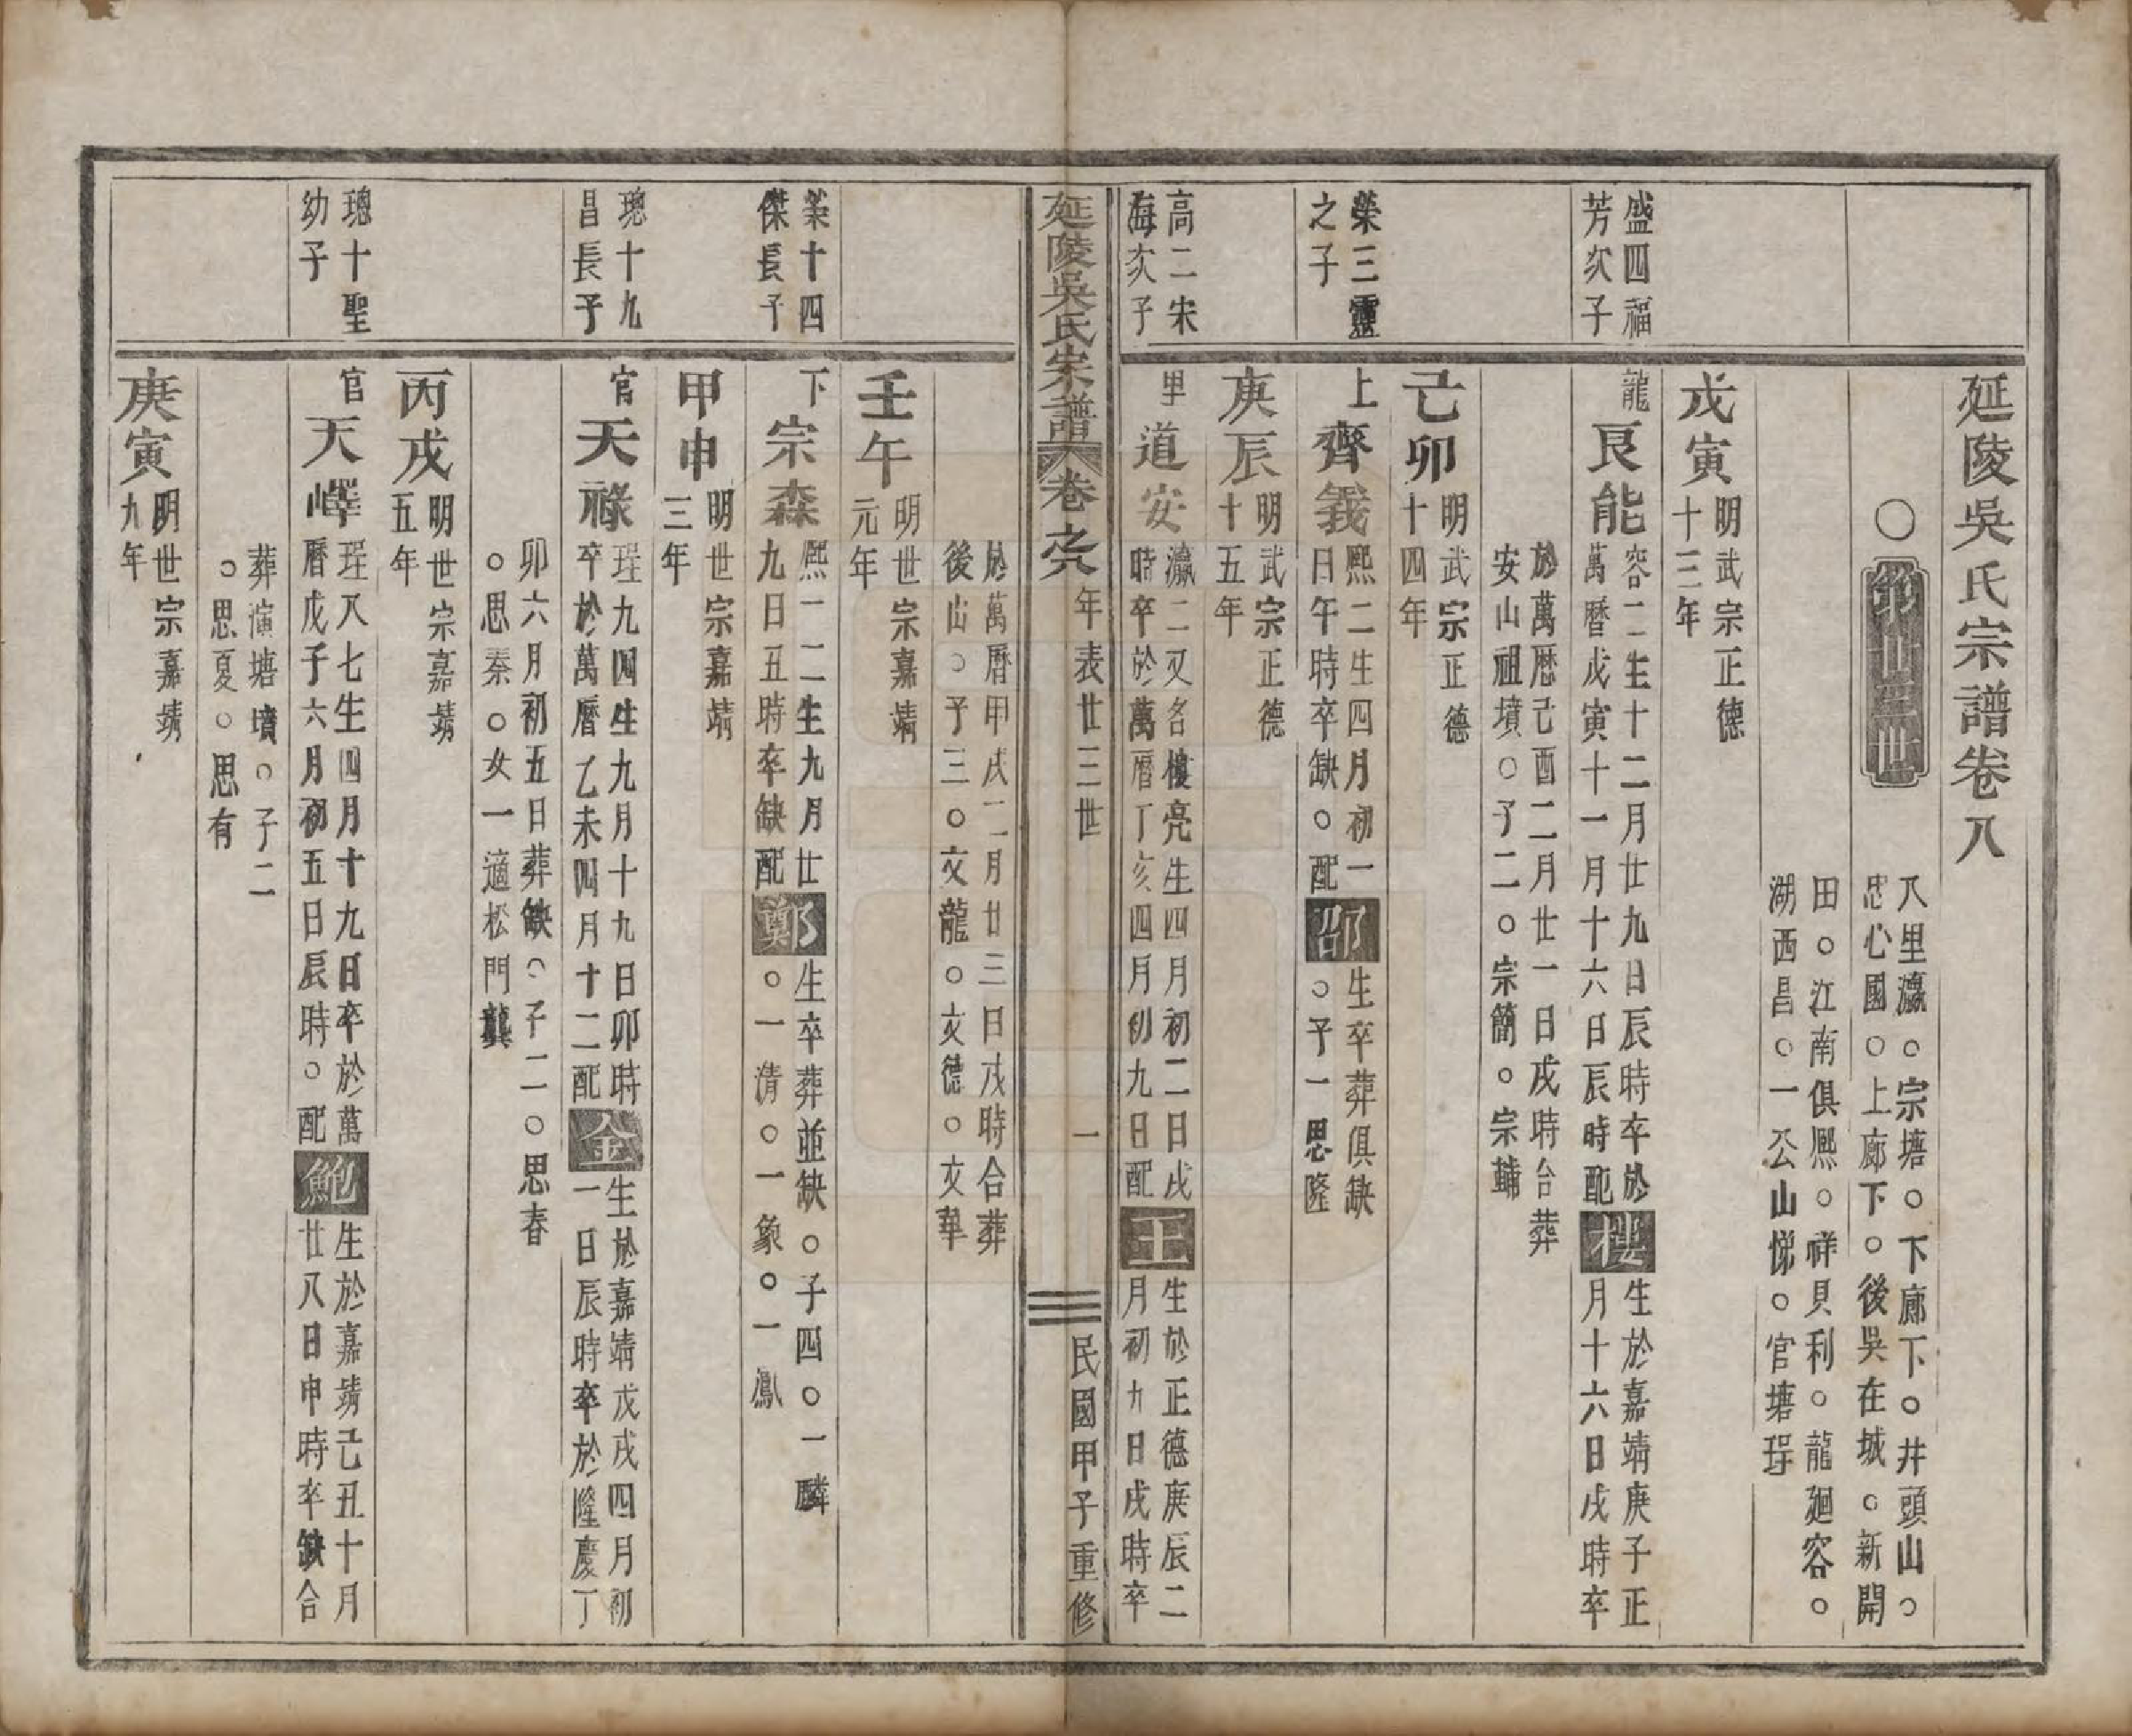 延陵吳氏宗譜卷八
○ 第廿三世
八里瀛○宗塘○下廊下○井頭山○
忠心國○上廊下○後吳在城○新開
田○江南俱熈○祥貝利○龍廻容○
湖西昌○一公山悌○官塘珵
戊寅
明武宗正德
十三年
盛四福
芳次子
龍
艮能
容二生十二月廿九日辰時卒於
萬曆戊寅十一月十六日辰時配
樓
生於嘉靖庚子正
月十六日戌時卒
於萬曆己酉二月廿一日戌時合葬
安山祖墳○子二○宗簡○宗輔
己卯
明武宗正德
十四年
榮三靈
之子
上
齊義
熈二生四月初一
日午時卒缺○配
邵
生卒葬俱缺
○子一思隆
庚辰
明武宗正德
十五年
高二宋
海次子
里
道安
瀛二又名樓亮生四月初二日戌
時卒於萬曆丁亥四月初九日配
王
生於正德庚辰二
月初九日戌時卒
延陵吳氏宗譜 卷之八 年表廿三世 一 民國甲子重修
於萬曆甲戌二月廿三日戌時合葬
後山○子三○文龍○文德○文華
壬午
明世宗嘉靖
元年
榮十四
傑長子
下
宗森
熈一二生九月廿
九日丑時卒缺配
鄭
生卒葬並缺○子四○一麟
○一清○一象○一鳳
甲申
明世宗嘉靖
三年
璁十九
昌長子
官
天祿
珵九四生九月十九日卯時
卒於萬曆乙未四月十二配
金
生於嘉靖戊戌四月初
一日辰時卒於隆慶丁
卯六月初五日葬缺○子二○思春
○思秦○女一適松門龔
丙戌
明世宗嘉靖
五年
璁十聖
幼子
官
天嶧
珵八七生四月十九日卒於萬
曆戊子六月初五日辰時○配
鮑
生於嘉靖己丑十月
廿八日申時卒缺合
葬演塘墳○子二
○思夏○思有
庚寅
明世宗嘉靖
九年